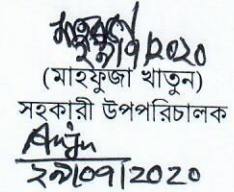 ২৯/০৭/২০২০
(মাহফুজা খাতুন)
সহকারী উপপরিচালক
২৯/০৭/2020